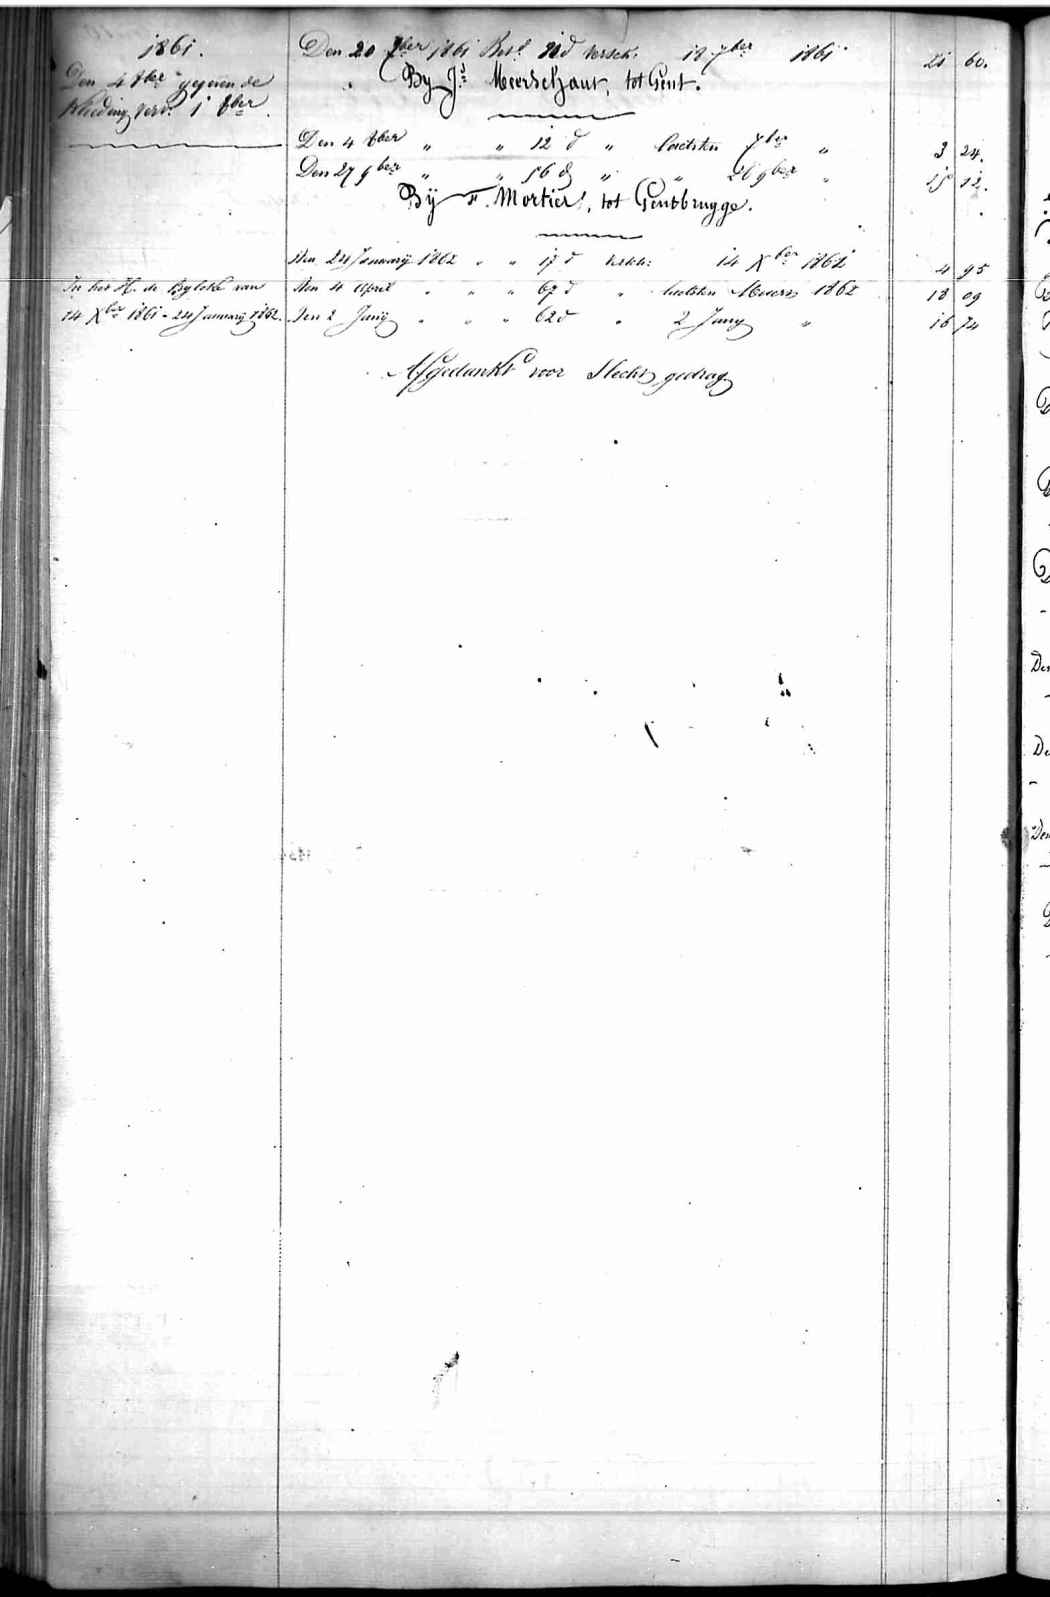 1861.
Den 4 8ber gegeven de
Kleeding verv. 1 8ber.
Den 20 7ber 1861 Bet. d versch: 18 7ber 1861 21 60.
By Js Meerschaut, tot Gent.
Den 4 8ber " " 12 d " laetsten 7ber " 3 24.
Den 27 9ber " " 56 d " " 26 9ber " 15 12.
Bij F. Mortier, tot Gentbrugge.
Den 24 Januarij 1862 " " 17 d versch: 14 Xber 1861 4 95
In het H. de Byloke van
14 Xber 1861 - 24 Januarij 1862.
Den 4 April " " " 67 d " laetsten Meers 1862 18 09
Den 2 Junij " " " 62 d " 2 Juny " 16 74
Afgedankt voor Slecht gedrag